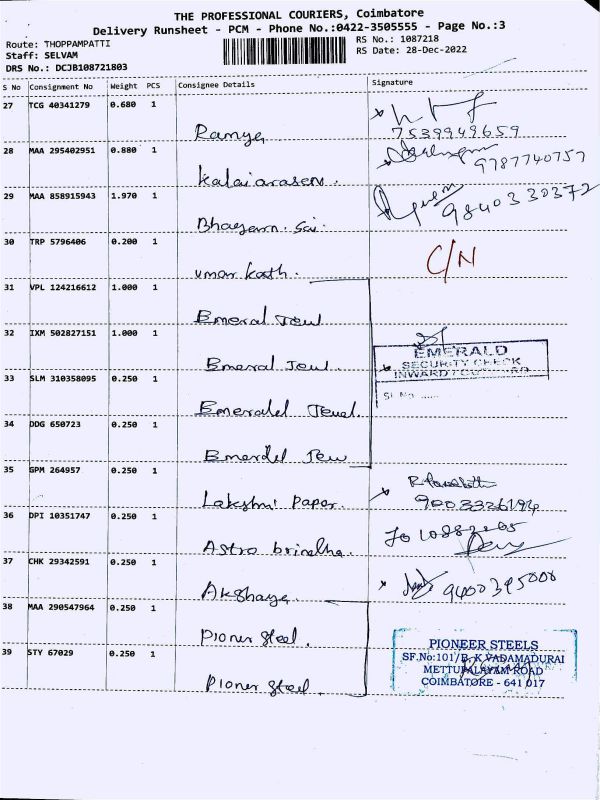 THE PROFESSIONAL COURIERS, Coimbatore
Delivery Runsheet - PCM - Phone No.:0422-3505555 - Page No.:3
Route: THOPPAMPATTI
RS No.: 1087218
Staff: SELVAM
RS Date: 28-Dec-2022
DRS No.: DCJB108721803
S No Consignment No Weight PCS Consignee Details Signature
27 TCG 40341279 0.680 1
Ramya 7539949659
28 MAA 295402951 0.880 1
Kalaiarasen. 9787740757
29 MAA 858915943 1.970 1
Bhagavn. Sai. 9840330372
30 TRP 5796406 0.200 1
umar kath. C/N
31 VPL 124216612 1.000 1
Emeral Jewl
32 IXM 502827151 1.000 1
Emeral Jewl.
EMERALD
SECURITY CHECK
INWARD
33 SLM 310358095 0.250 1
Sl. No. ......
Emeraled Jewel.
34 DDG 650723 0.250 1
Emerdel Jew
35 GPM 264957 0.250 1
Lakshmi Paper. 9003326194
36 DPI 10351747 0.250 1
Astro
37 CHK 29342591 0.250 1
Akshaya. 9400395000
38 MAA 290547964 0.250 1
Pioner Steel.
39 STY 67029 0.250 1
Pioner Steel.
PIONEER STEELS
SF.No:101/B, K.VADAMADURAI
METTUPALAYAM ROAD
COIMBATORE - 641 017